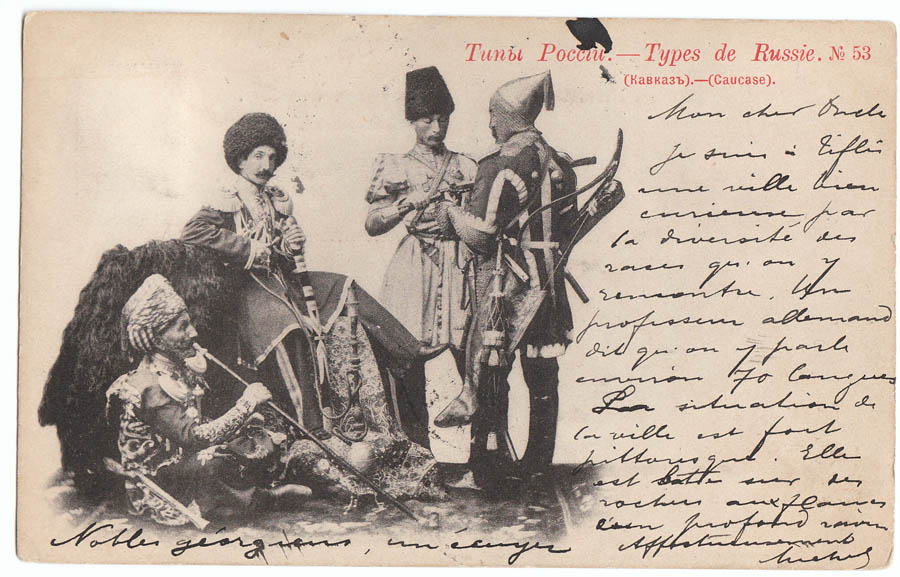 Типы Россіи. — Types de Russie. № 53
(Кавказъ). — (Caucase).
Mon cher Oncle
Je suis à Tiflis
une ville bien
curieuse par
la diversité des
races qu'on y
rencontre. Un
professeur allemand
dit qu'on y parle
environ 70 langues
La situation de
la ville est fort
pittoresque. Elle
est batie sur des
rochers aux flancs
d'un profond ravin
Affectueusement
Michel
Nobles géorgiens, un écuyer